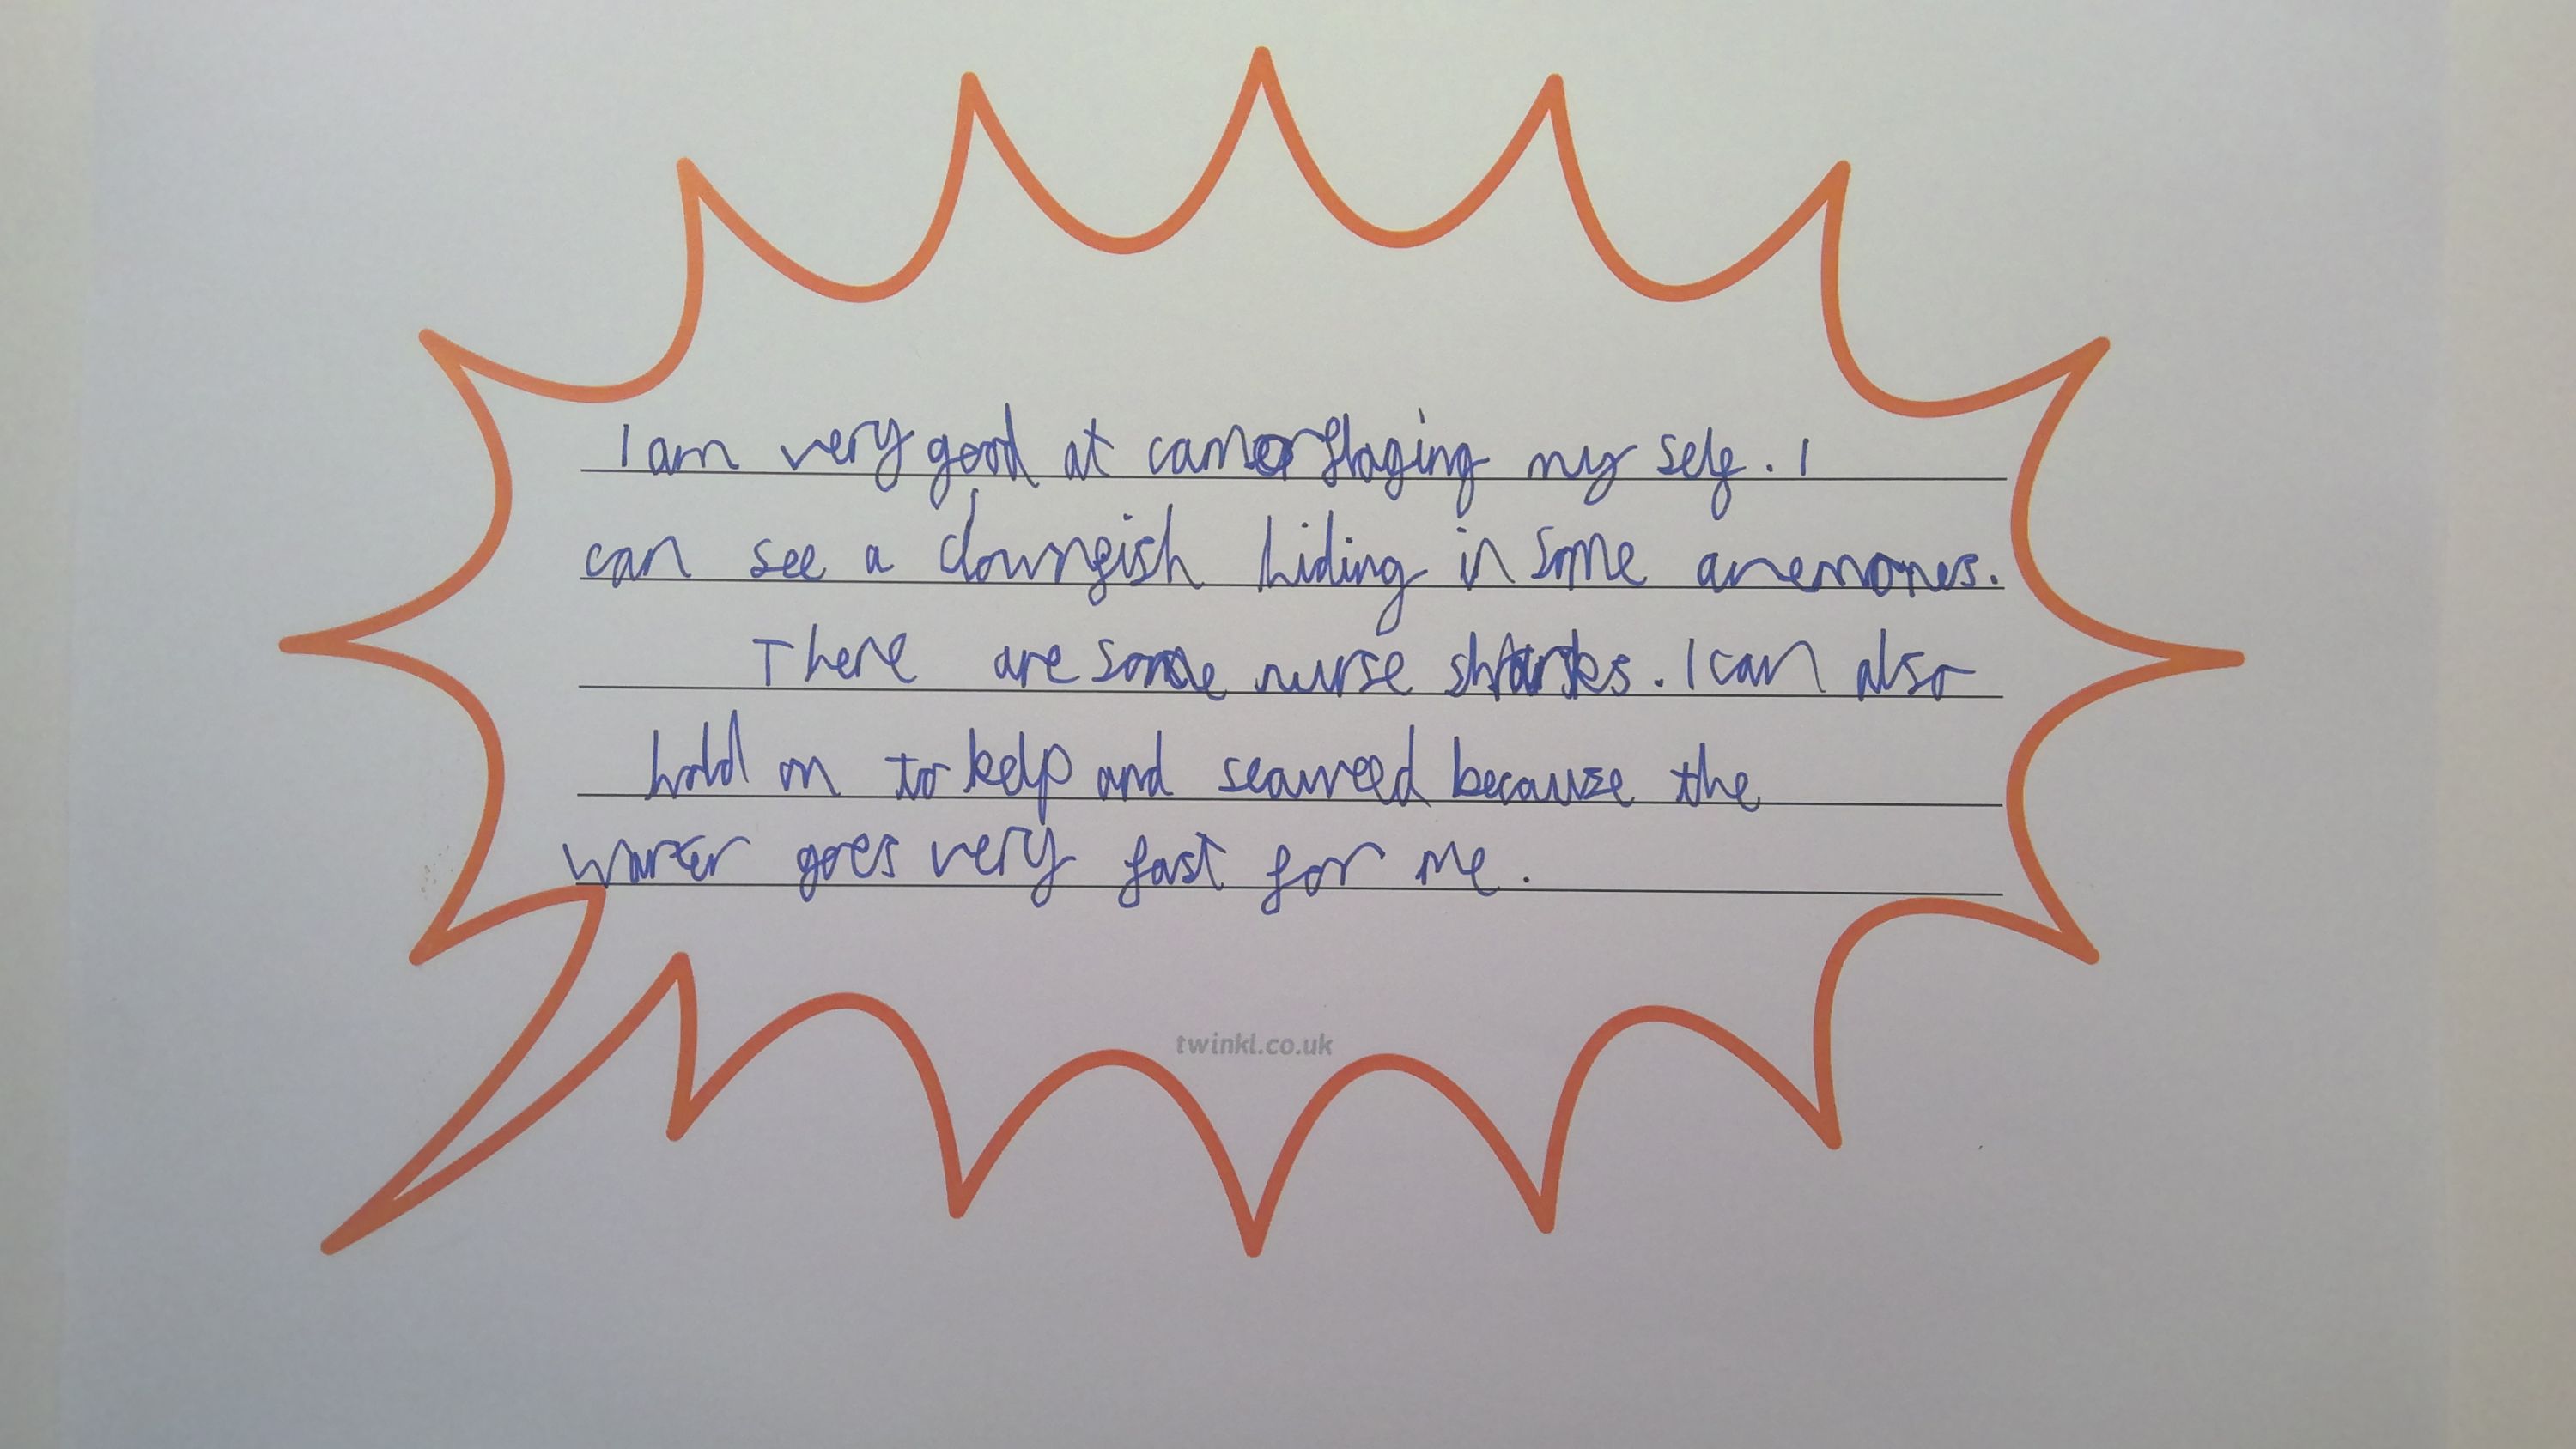 I am very good at camorflaging my self. I
can see a clownfish hiding in some anemones.
There are some nurse sharks. I can also
hold on to kelp and seaweed because the
water goes very fast for me.
twinkl.co.uk